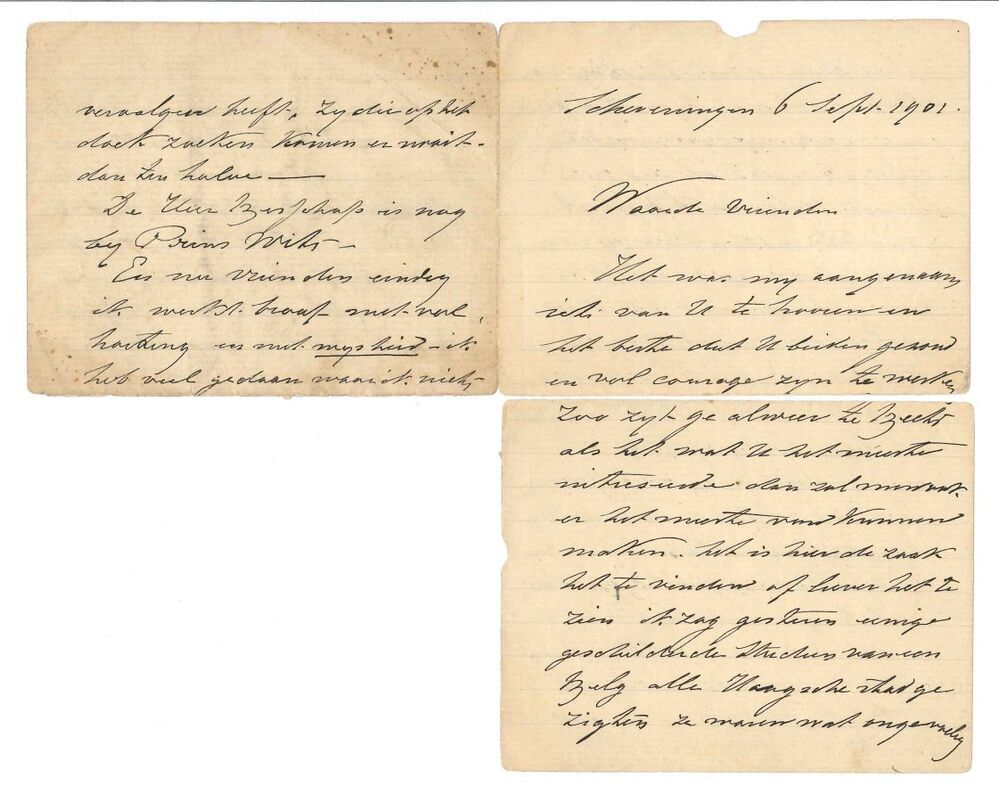 Scheveningen 6 Sept. 1901.
Waarde Vrienden
Het was my aangenaam
iets van U te hooren en
het beste dat U beiden gezond
en vol courage zyn te werken
zoo zyt ge alweer te
als het wat U het meeste
dan zal
er het meeste van kunnen
maken. het is hier de zaak
het te vinden of liever het te
zien ik zag gisteren eenige
geschilderde studies van een
Belg alle Haagsche stadge
zigten ze waren wat ongevoelig
heeft, zy die op het
dak zoeken komen er nooit
dan ten halve —
De Heer is nog
by Prins Wits —
En nu vrienden eindig
ik werkt braaf met vol
harding en met — ik
heb veel gedaan waar ik niets